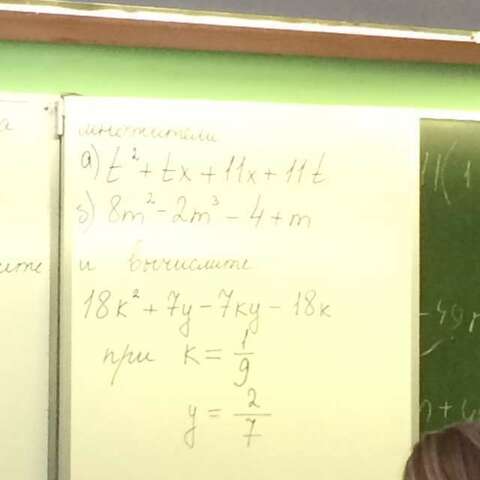 а
множители
а) t² + tx + 11x + 11t
б) 8m² - 2m³ - 4 + m
и вычислите
18k² + 7y - 7ky - 18k
при k = 1/9
y = 2/7